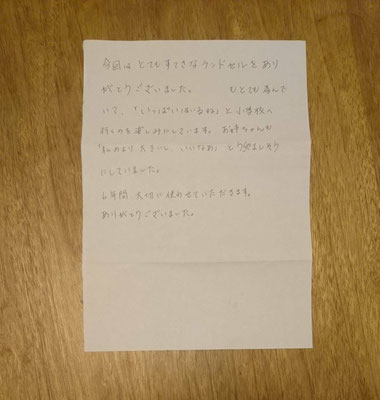 今回は とてもすてきなランドセルをあり
がとうございました。 もとても喜んで
いて、「いっぱいはいるね」と小学校へ
行くのを楽しみにしています。お姉ちゃんも
「私のより大きいし、いいなあ」とうらやましそう
にしていました。
6年間 大切に使わせていただきます。
ありがとうございました。